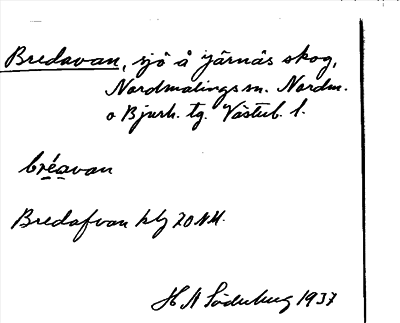 Bredavan, sjö å Järnäs skog,
Nordmalings sn. Nordm.
o Bjurh. tg. Västerb. l.
bréavan
Bredafvan kbl 70 NM.
H N Söderberg 1937